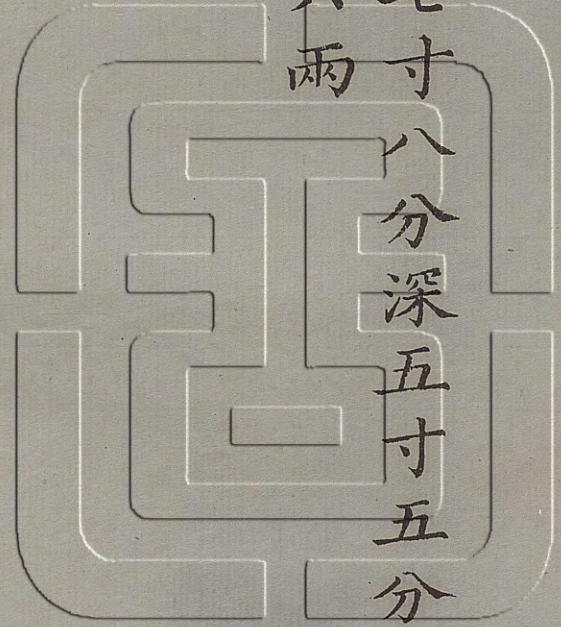 寸八分深五寸五分
兩